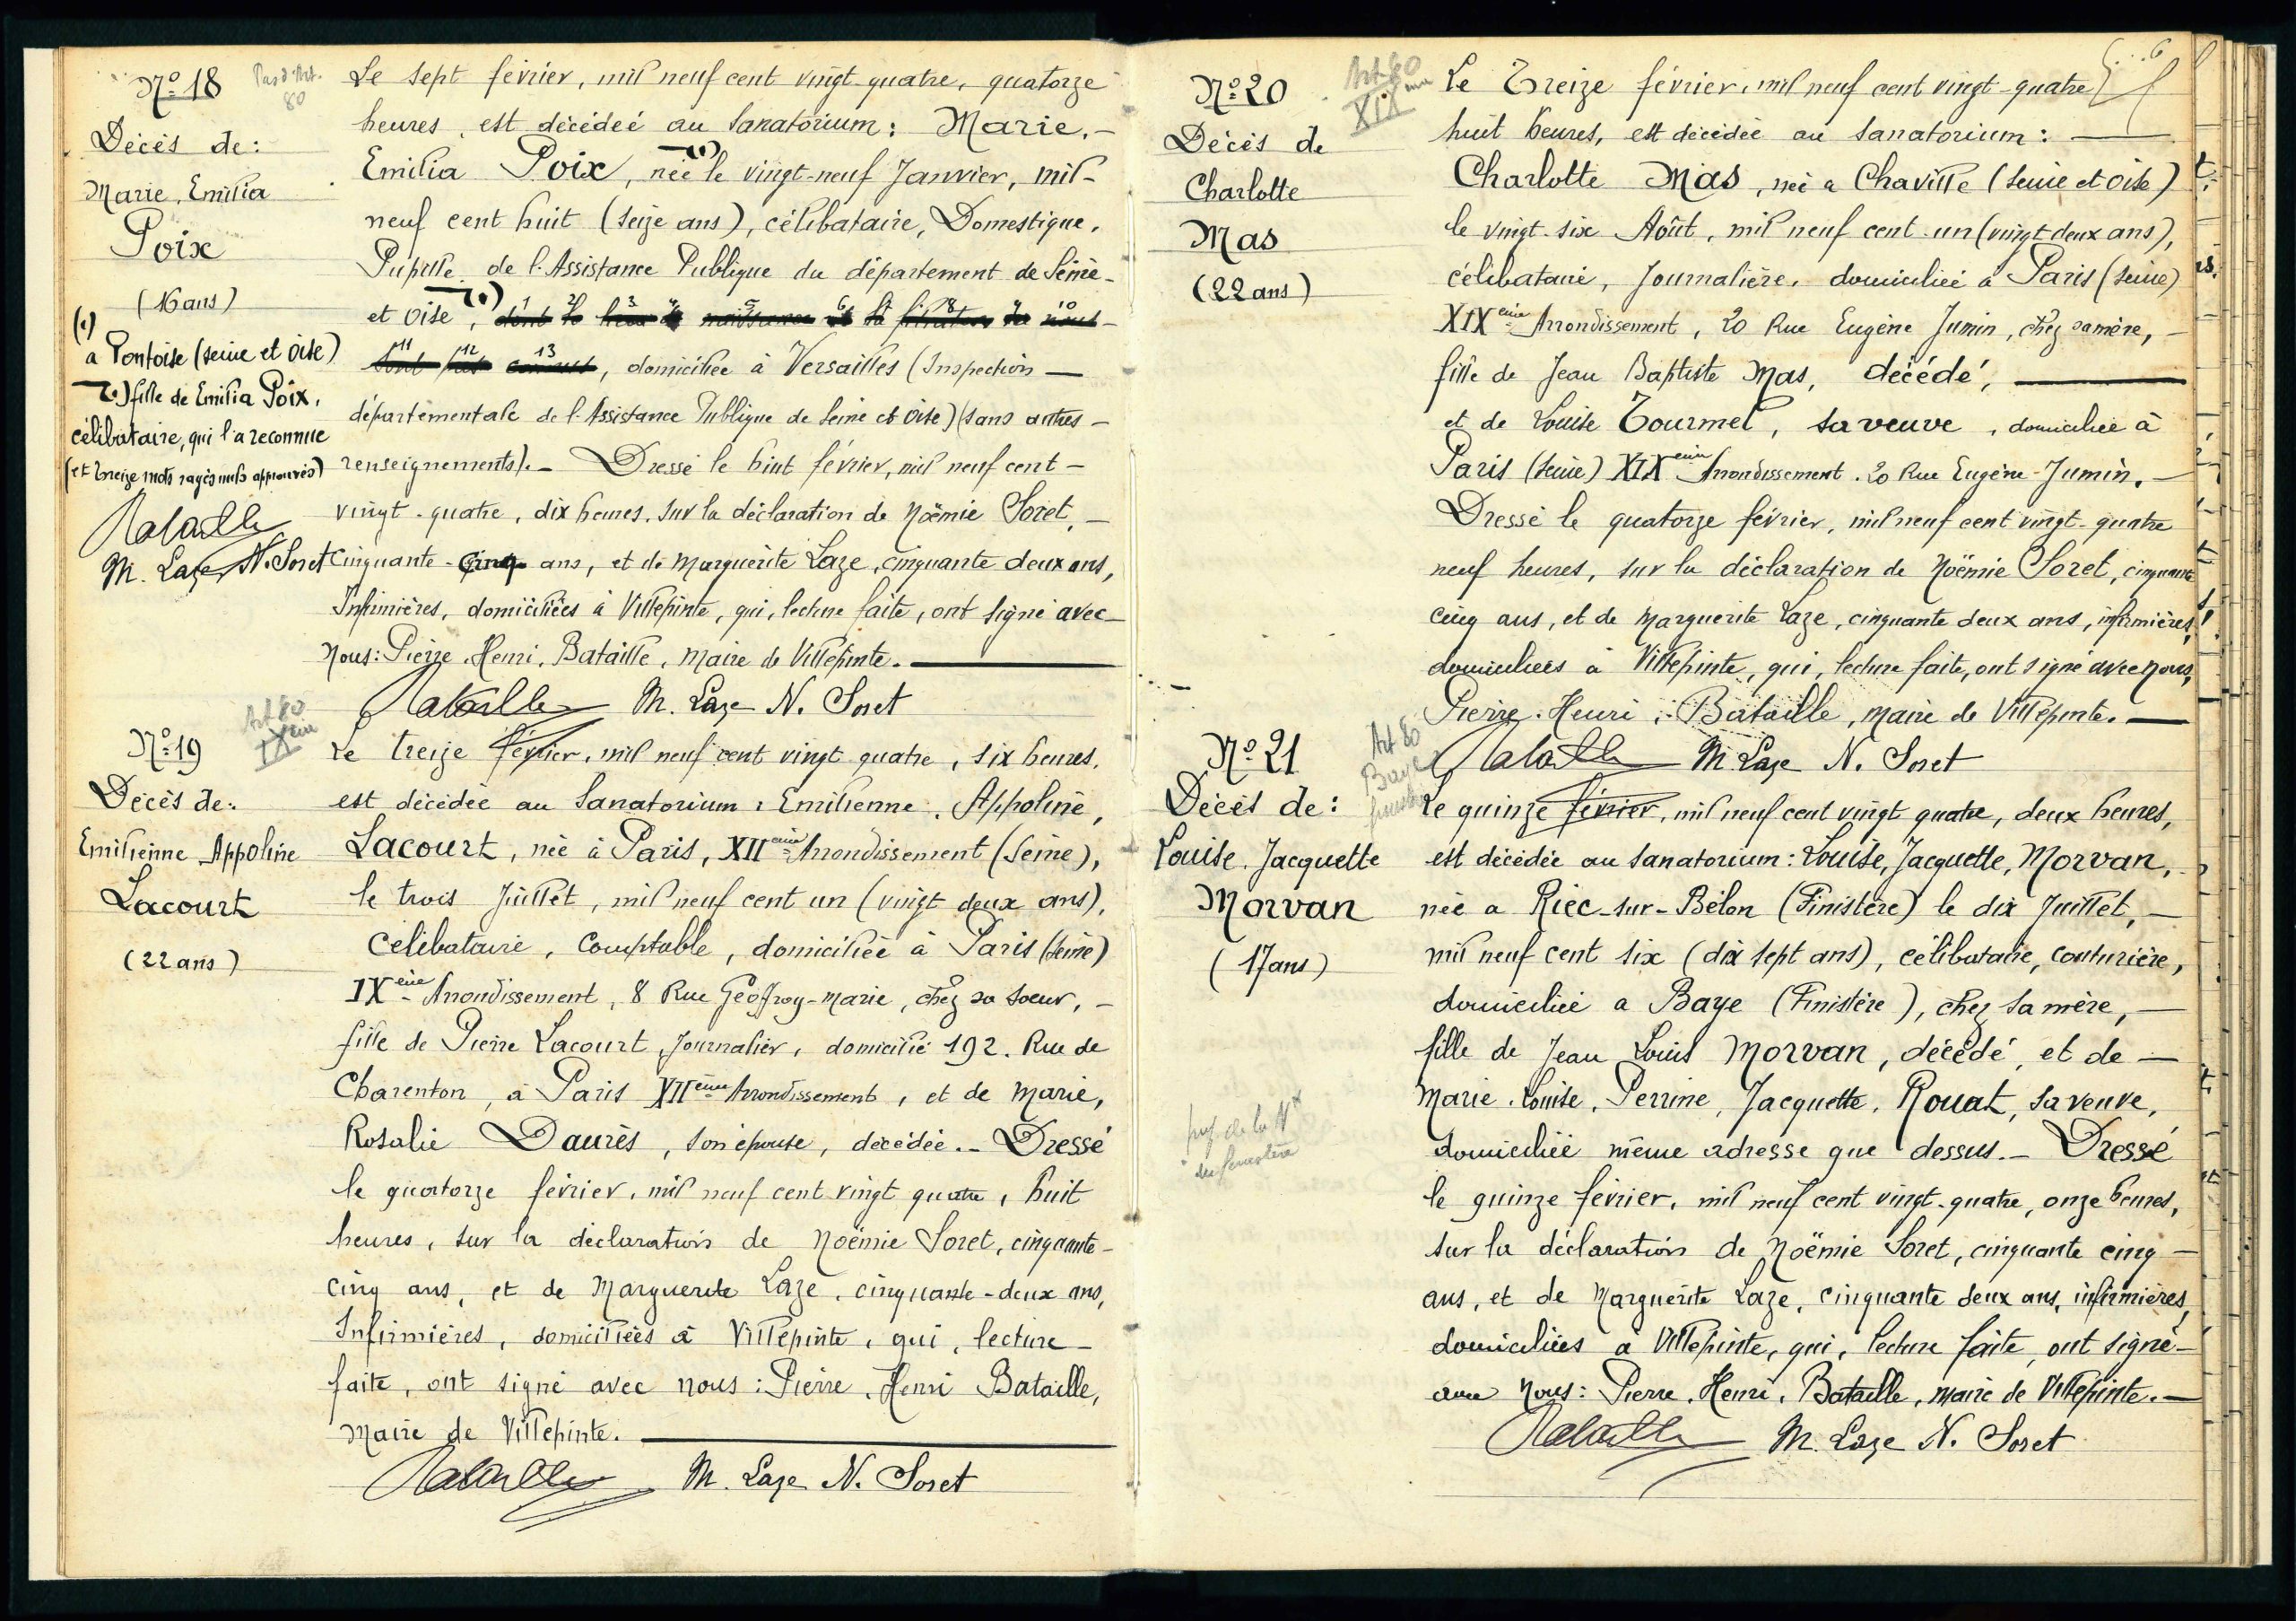 Nº 18
Pas d'Art.
80
Décès de:
Marie, Emilia
Poix
(16 ans)
(1)
a Pontoise (Seine et Oise)
2.) fille de Emilia Poix,
célibataire, qui l'a reconnue
(et treize mots rayés nuls approuvés)
Bataille
M. Laze N. Soret
Le sept février, mil neuf cent vingt quatre, quatorze
heures, est décédée au Sanatorium: Marie, –
Emilia Poix, née (1) le vingt-neuf Janvier, mil-
neuf cent huit (seize ans), célibataire, Domestique,
Pupille de l'Assistance Publique du département de Seine-
et Oise (2), dont le lieu de naissance et la filiation ne nous
sont pas connus, domiciliée à Versailles (Inspection —
départementale de l'Assistance Publique de Seine et Oise) (sans autres –
renseignements). – Dressé le huit février, mil neuf cent –
vingt-quatre, dix heures, sur la déclaration de Noëmie Soret, –
Cinquante-cinq ans, et de Marguerite Laze, cinquante deux ans,
Infirmières, domiciliées à Villepinte, qui, lecture faite, ont signé avec –
Nous: Pierre, Henri, Bataille, Maire de Villepinte. —
Bataille M. Laze N. Soret
Nº 19
Art 80
IXème
Décès de:
Emilienne Appoline
Lacourt
(22 ans)
Le treize février, mil neuf cent vingt quatre, six heures,
est décédée au Sanatorium: Emilienne, Appoline,
Lacourt, née à Paris, XIIème Arrondissement (Seine),
le trois Juillet, mil neuf cent un (vingt deux ans),
Célibataire, Comptable, domiciliée à Paris (Seine)
IXème Arrondissement, 8 Rue Geoffroy-Marie, chez sa soeur, –
fille de Pierre Lacourt, Journalier, domicilié 192. Rue de
Charenton, à Paris XIIème Arrondissement, et de Marie,
Rosalie Daurès, son épouse, décédée. – Dressé
le quatorze février, mil neuf cent vingt quatre, huit
heures, sur la déclaration de Noëmie Soret, cinquante-
cinq ans, et de Marguerite Laze, cinquante-deux ans,
Infirmières, domiciliées à Villepinte, qui, lecture –
faite, ont signé avec nous: Pierre, Henri Bataille,
Maire de Villepinte. —
Bataille M. Laze N. Soret
Nº 20
Art 80
XIXème
Décès de
Charlotte
Mas
(22 ans)
6
Le Treize février, mil neuf cent vingt-quatre
huit heures, est décédée au Sanatorium: —
Charlotte Mas, née a Chaville (Seine et Oise)
le vingt-six Août, mil neuf cent-un (vingt deux ans),
célibataire, Journalière, domiciliée à Paris (Seine)
XIXème Arrondissement, 20 Rue Eugène Jumin, chez sa mère, –
fille de Jean Baptiste Mas, décédé, —
et de Louise Tourmel, sa veuve, domiciliée à
Paris (Seine) XIXème Arrondissement. 20 Rue Eugène-Jumin. –
Dressé le quatorze février, mil neuf cent vingt-quatre
neuf heures, sur la déclaration de Noëmie Soret, cinquante
cinq ans, et de Marguerite Laze, cinquante deux ans, infirmières,
domiciliées à Villepinte, qui, lecture faite, ont signé avec nous,
Pierre, Henri, Bataille, Maire de Villepinte. —
Bataille M. Laze N. Soret
Nº 21
Art 80
Baye
Décès de:
Louise, Jacquette
Morvan
(17 ans)
Le quinze février, mil neuf cent vingt quatre, deux heures,
est décédée au Sanatorium: Louise, Jacquette, Morvan,
née a Riec-sur-Bélon (Finistère) le dix Juillet, –
mil neuf cent six (dix sept ans), célibataire, couturière,
domiciliée a Baye (Finistère), chez sa mère, –
fille de Jean Louis Morvan, décédé, et de –
Marie, Louise, Perrine, Jacquette, Rouat, sa veuve,
domiciliée même adresse que dessus. – Dressé
le quinze février, mil neuf cent vingt-quatre, onze heures,
sur la déclaration de Noëmie Soret, cinquante cinq –
ans, et de Marguerite Laze, cinquante deux ans, infirmières,
domiciliées a Villepinte, qui, lecture faite, ont signé –
avec Nous: Pierre, Henri, Bataille, Maire de Villepinte. –
Bataille M. Laze N. Soret